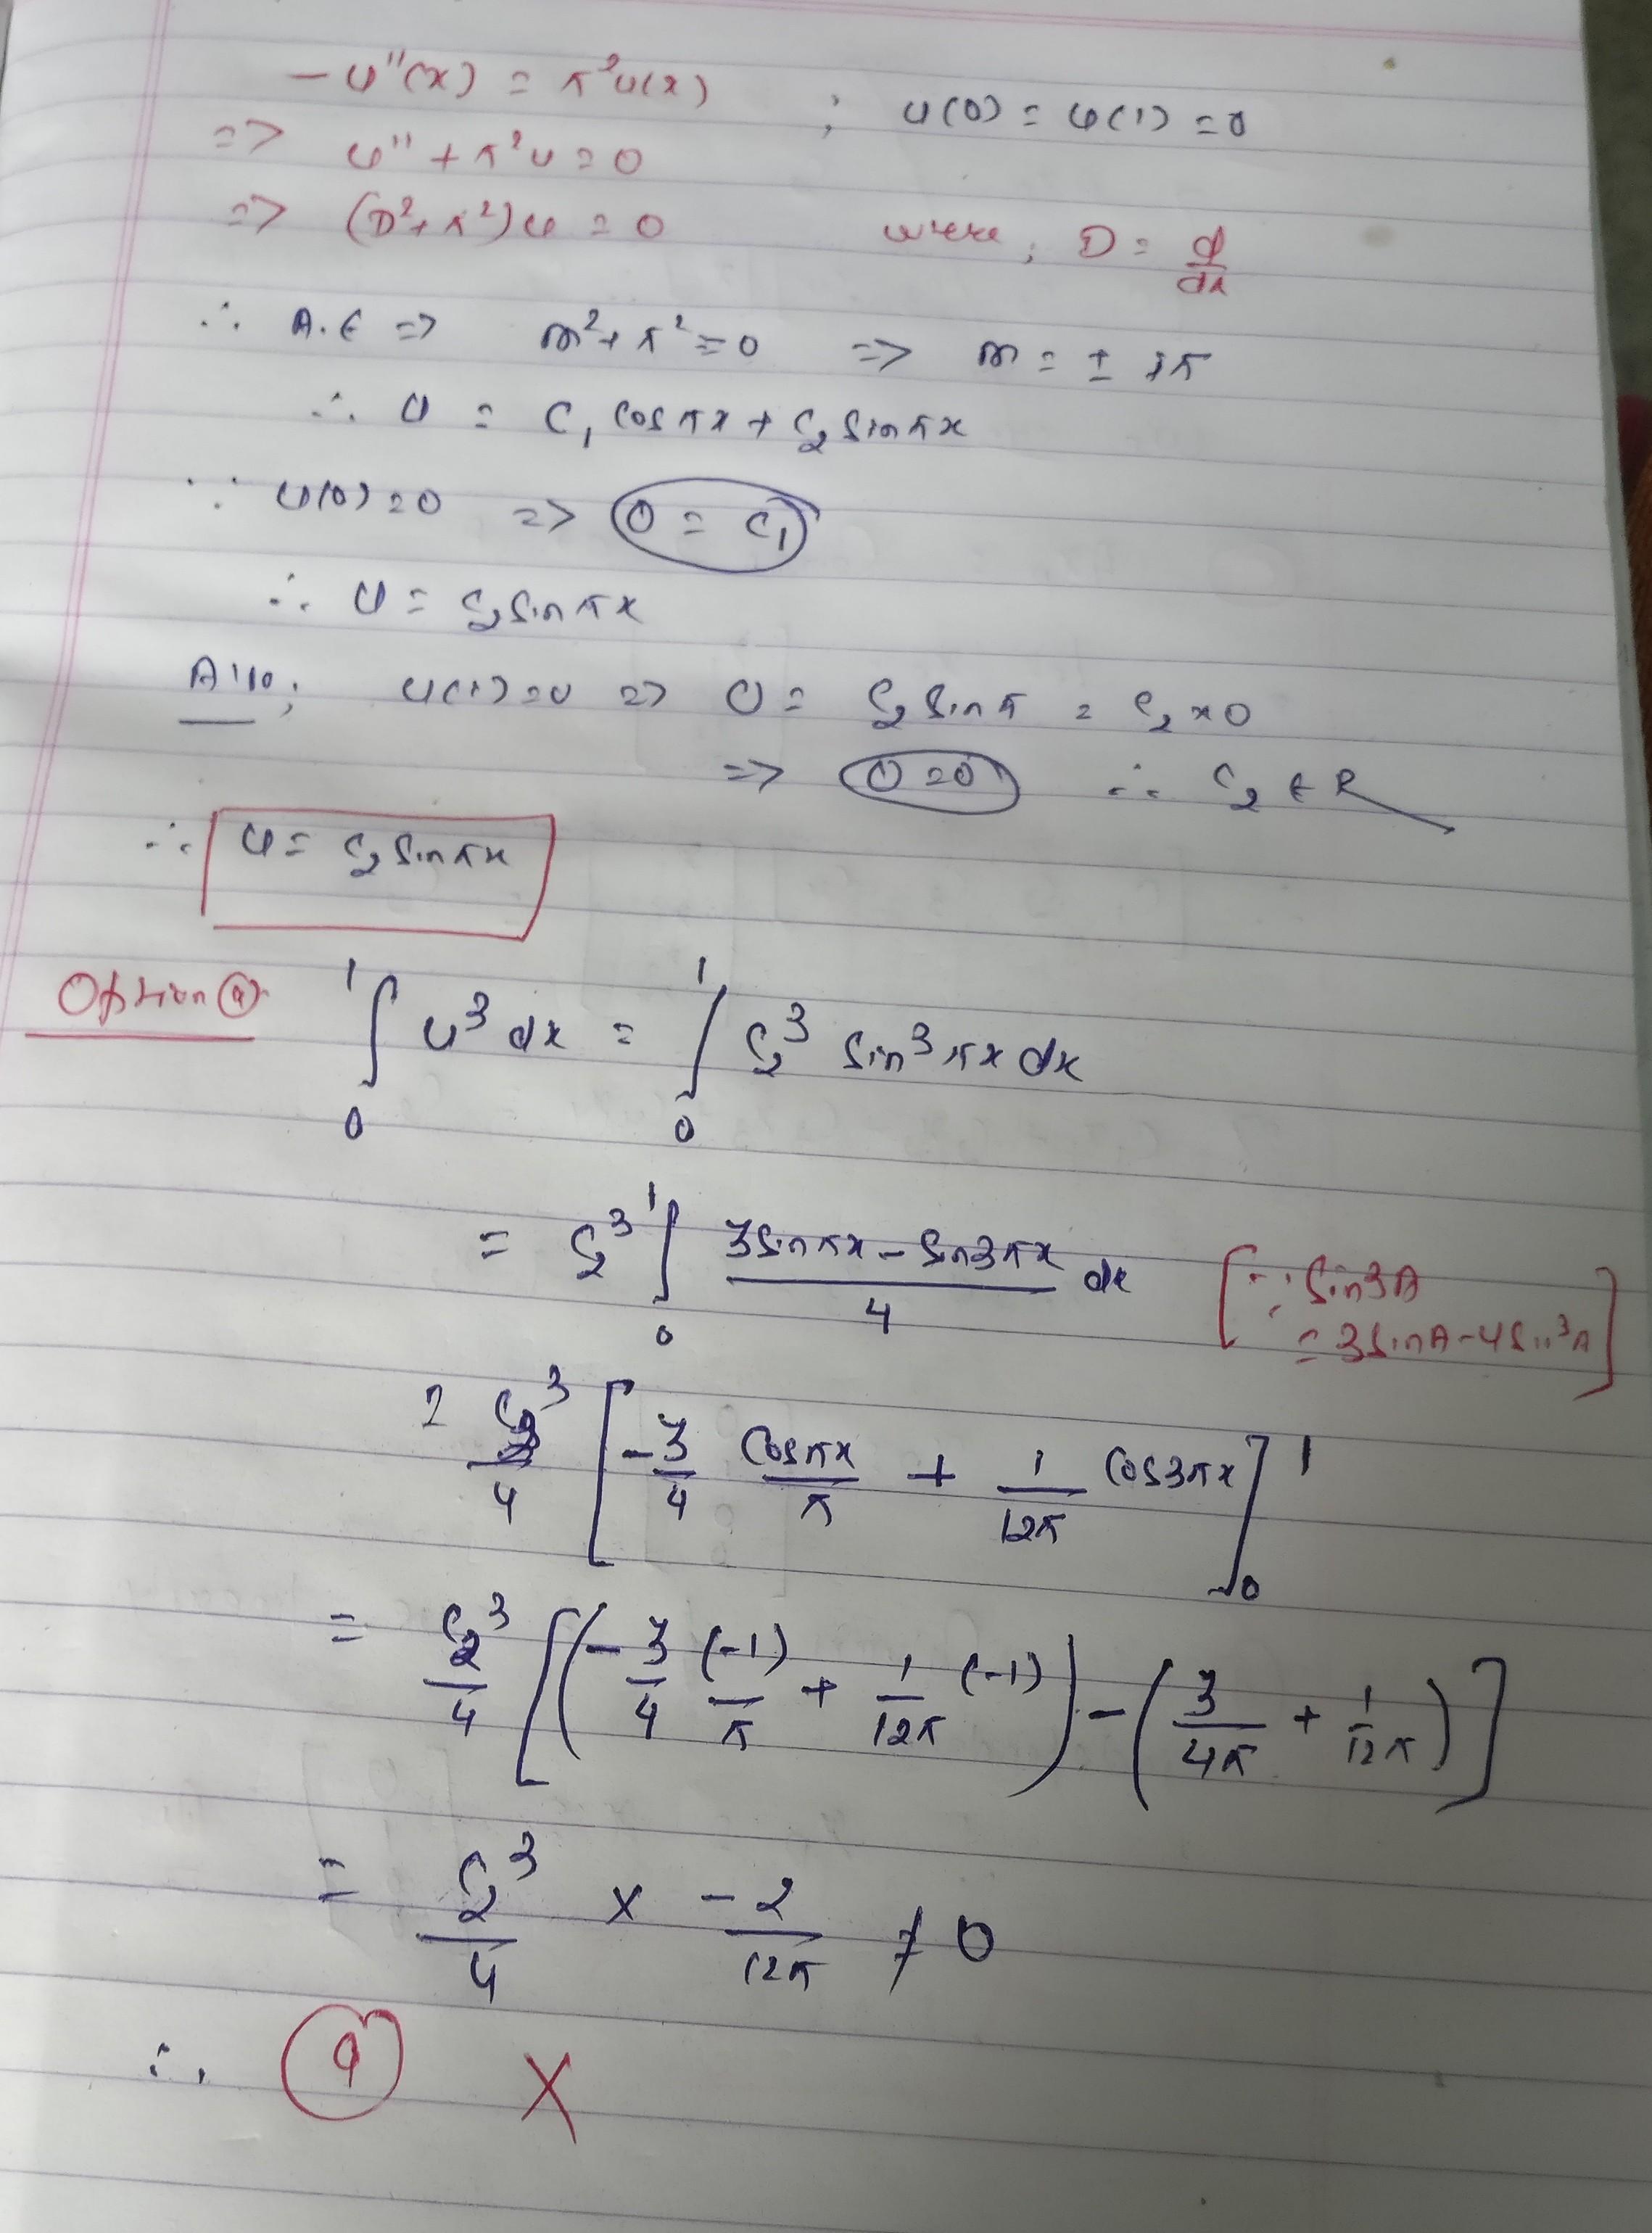 -u''(x) = π²u(x) ; u(0) = u(1) = 0
=> u'' + π²u = 0
=> (D² + π²)u = 0 where, D = d/dx
∴ A.E => m² + π² = 0 => m = ± iπ
∴ u = C₁ cosπx + C₂ sinπx
∵ u(0) = 0 => 0 = C₁
∴ u = C₂ sinπx
Also; u(1) = 0 => 0 = C₂ sinπ = C₂ × 0
=> 0 = 0 ∴ C₂ ∈ R
∴ u = C₂ sinπx
Option (a) ∫₀¹ u³ dx = ∫₀¹ C₂³ sin³πx dx
= C₂³ ∫₀¹ (3sinπx - sin3πx)/4 dx [∵ sin3A
= 3sinA - 4sin³A]
= C₂³/4 [-3/4 cosπx/π + 1/12π cos3πx]₀¹
= C₂³/4 [(-3/4 (-1)/π + 1/12π (-1)) - (3/4π + 1/12π)]
= C₂³/4 × -2/12π ≠ 0
∴ (a) X